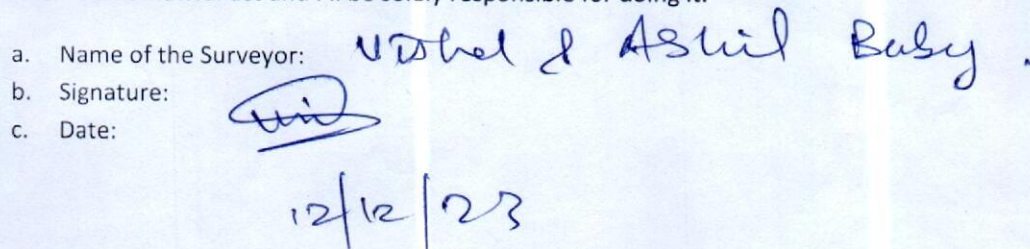 a. Name of the Surveyor: Vishal & Ashil Baby.
b. Signature:
c. Date:
12/12/23